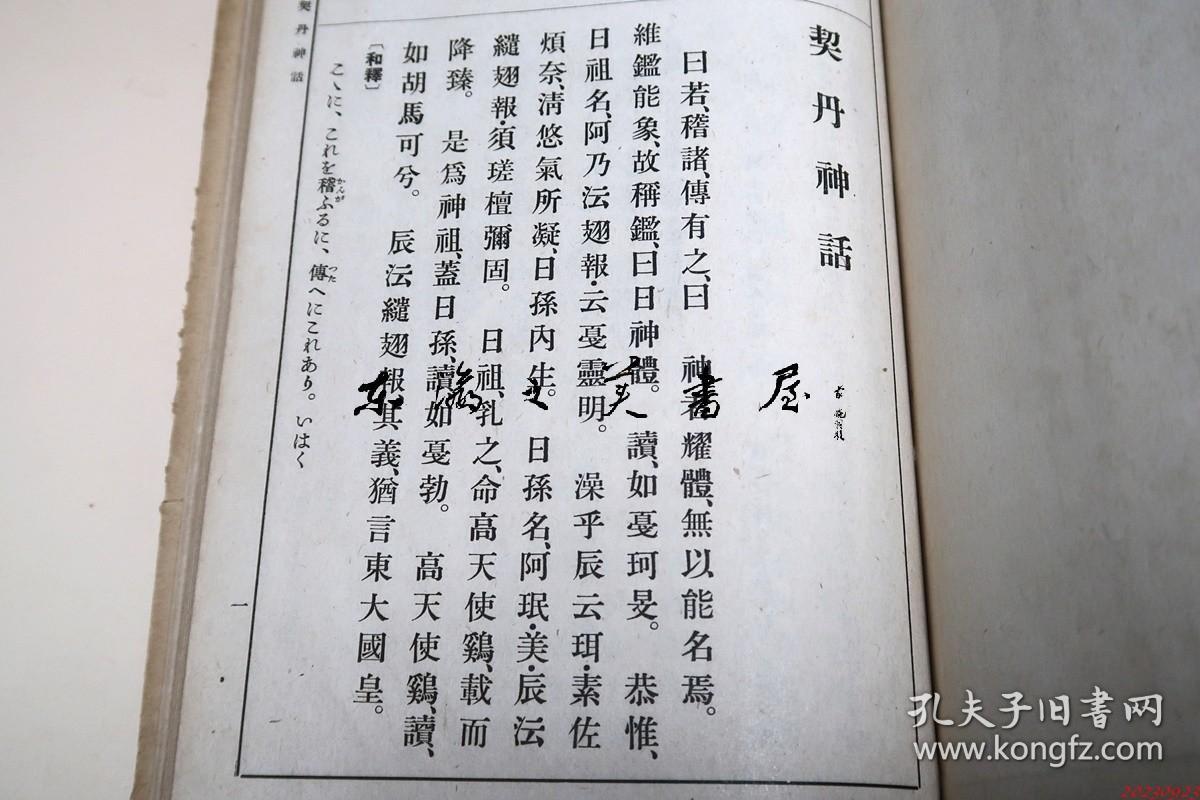 契丹神話
曰若、稽諸、傳有之、曰　神者耀體、無以能名焉。
維鑑能象、故稱鑑、曰日神體。　讀、如戞珂旻。　恭惟、
日祖名、阿乃沄翅報・云戞靈明。　澡乎辰云珥・素佐
煩奈、淸悠氣所凝、日孫內生。　日孫名、阿珉・美・辰沄
繾翅報・須瑳檀彌固。　日祖、乳之、命高天使鷄、載而
降臻。　是爲神祖、蓋日孫、讀如戞勃。　高天使鷄、讀、
如胡馬可兮。　辰沄繾翅報、其義、猶言東大國皇。
〔和釋〕
こゝに、これを稽ふるに、傳へにこれあり。いはく
かんが
つた
契丹神話
一
書屋
孔夫子旧书网
www.kongfz.com
20230923